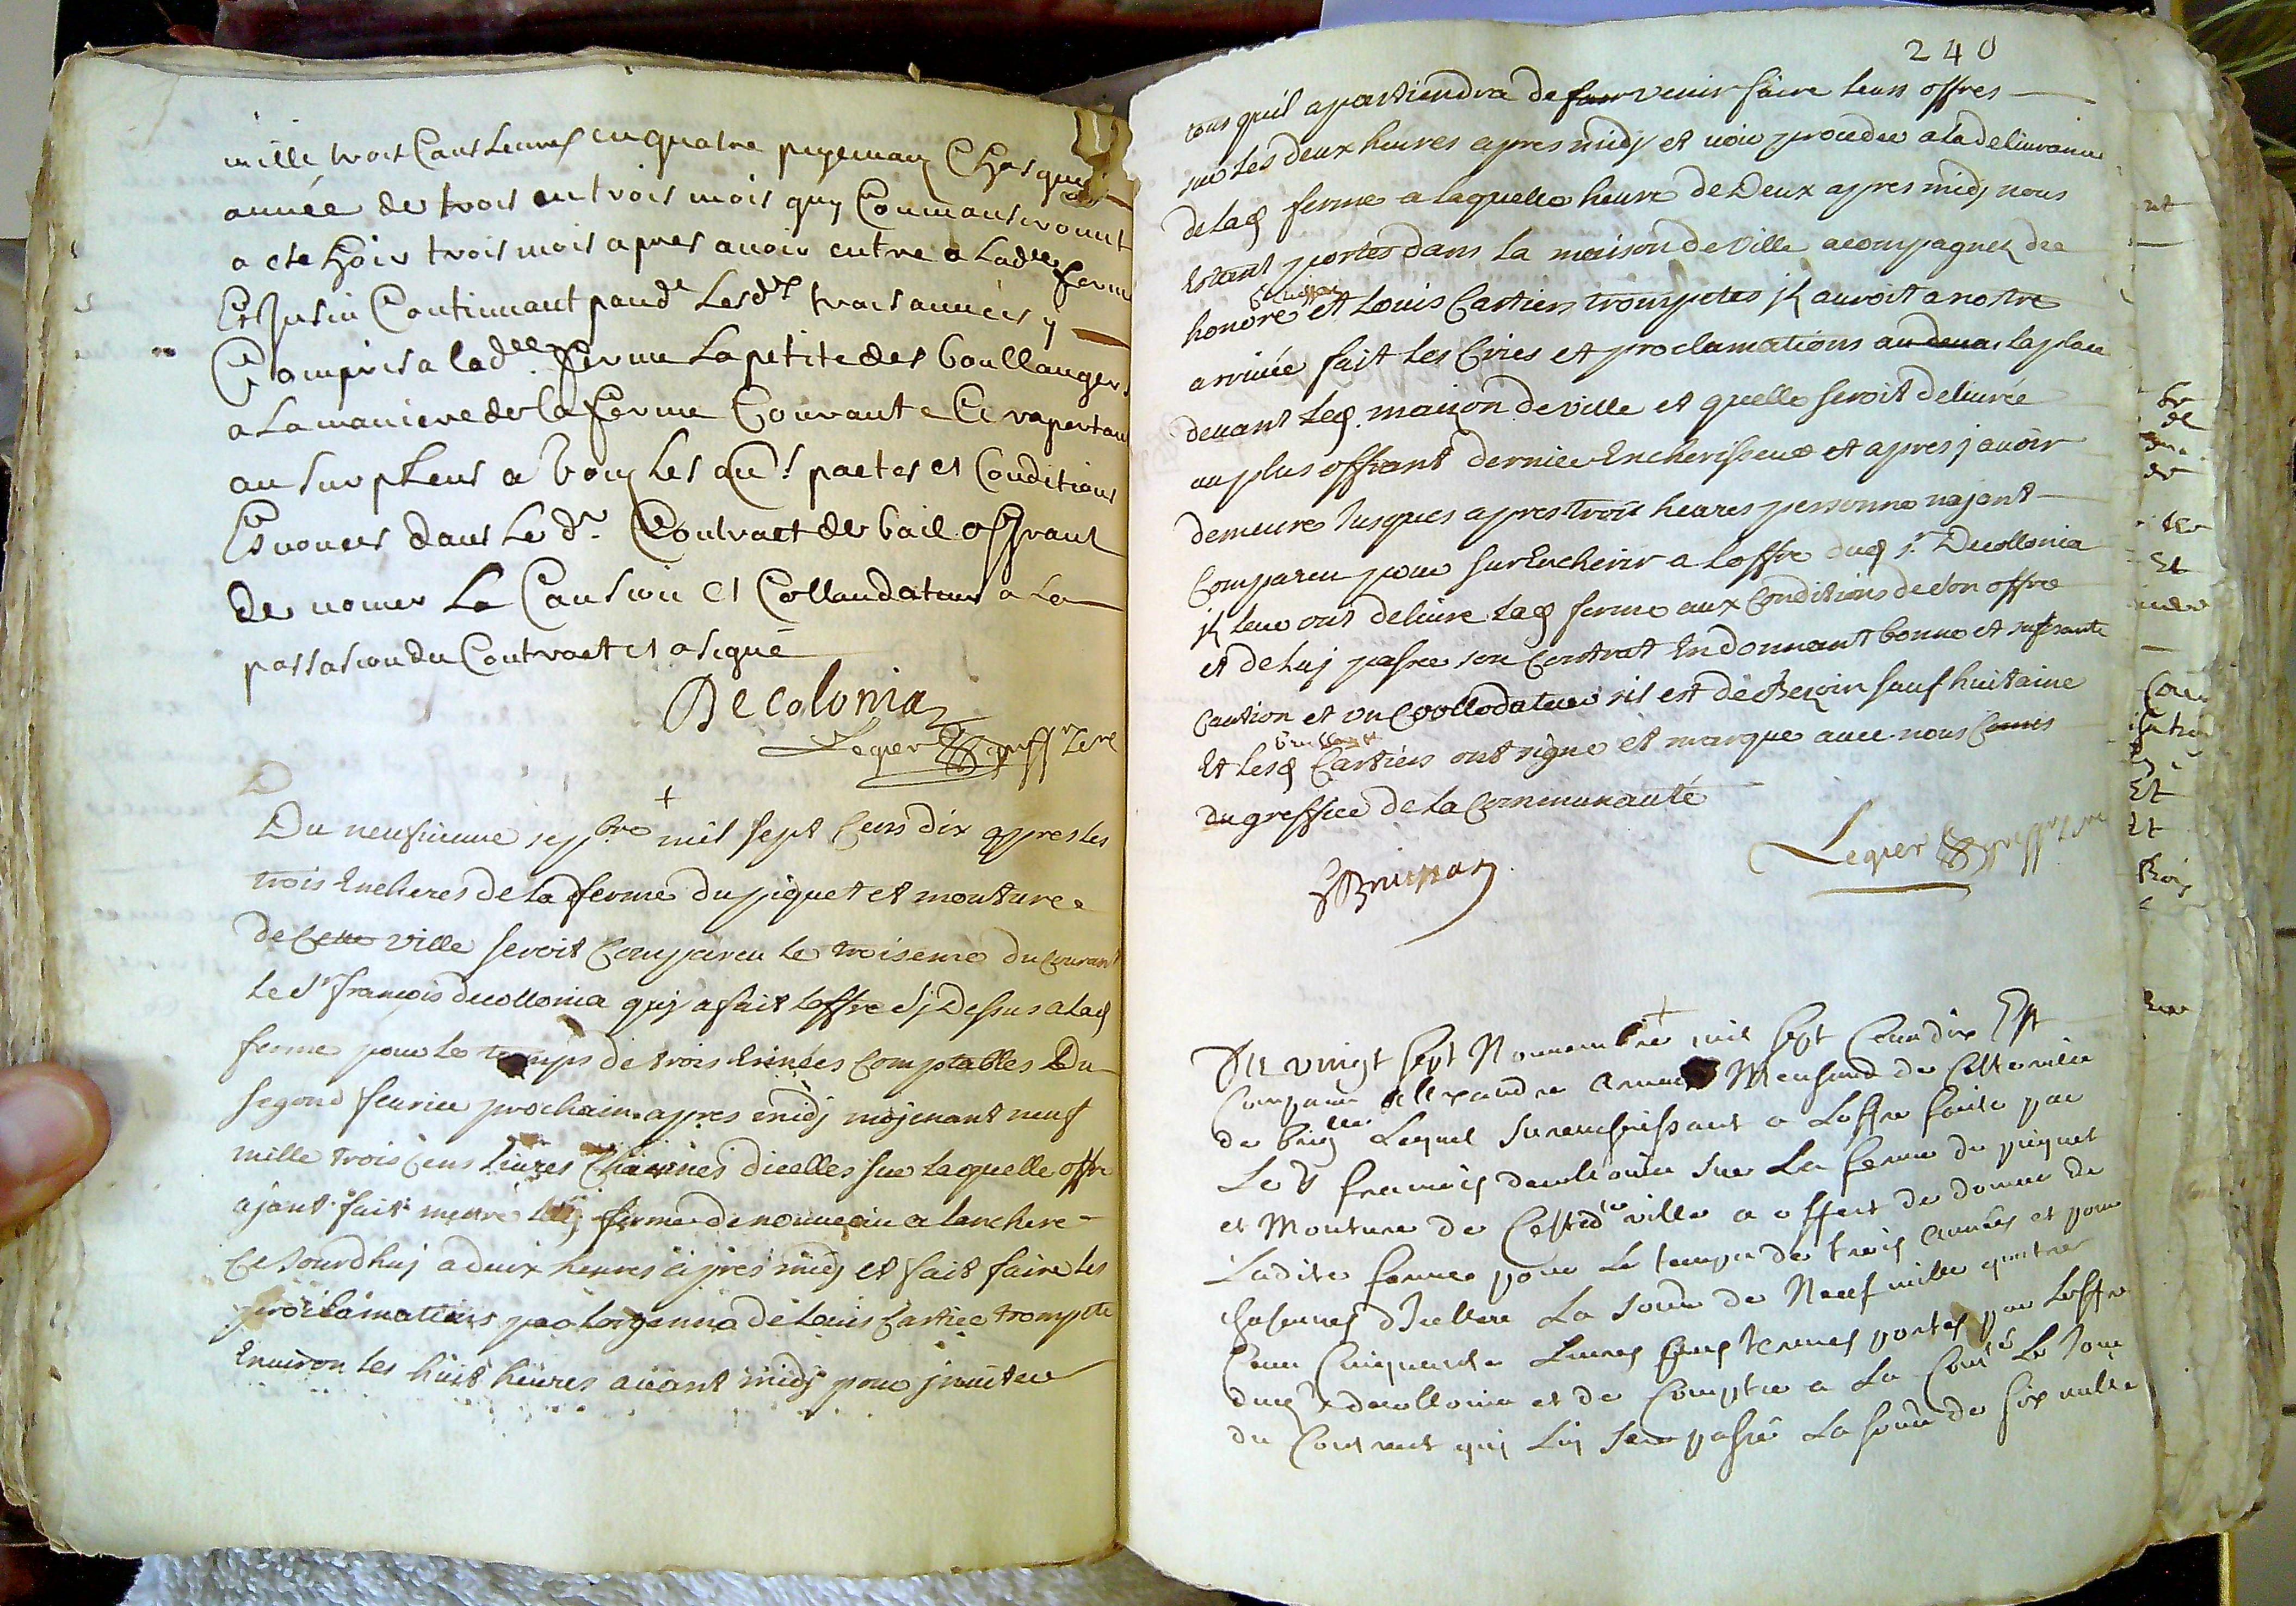 mille trois Cens Leures en quatre peyemans Chasque
année de trois en trois mois quy Coumanseront
a cheHoir trois mois apres auoir entre a Ladee ferme
Et Jnsin Continuant pand.t Lesd.s trois années y
Compris a ladee. ferme La petite des boullangers
a La maniere de la ferme Courante Ce raportant
au surpleus a tous Les au.s pactes et Conditions
Esnonces dans Le d.t Contract de bail offrant
de nomer La Caution et Collaudateur a La
passasion du Contract et a signé
Decolonia
Lequer greff.r
Du neufuieme sepbre mil sept Cens dix appres les
trois Encheres de la ferme du piquet et mouture
de Cette ville seroit Compareu le troisieme du Courant
le Sr françois decollonia quy a fait loffre Sy Dessus a lad
ferme pour le temps de trois Années Comptables Du
segond feurier prochain apres midy mojenant neuf
mille trois Cens liures Chacunes dicelles sur laquelle offre
ajant fait mettre lad ferme de nouueau a lenchere
Ce Jourdhuj a deux heures apres midj et fait faire les
proclamations par lorganne de Louis Cartier trompette
Enuiron les huit heures auant midj pour jnuiter
240
tous quil apartiendra de venir faire leurs offres
sur les deux heures apres midj et uoir proceder a la deliurance
de lad ferme a laquelle heure de Deux apres midj nous
Estant portes dans la maison de Ville acompagnes de
honoré et Louis Cartier trompetes jls auroit a nostre
arriuée fait les Cries et proclamations au deua. la place
deuant led. maison de Ville et quelle seroit deliurée
au plus offrant dernier Encherisseur et apres j auoir
demeure Jusques apres trois heures personne najant
Compareu pour surEncherir a loffre dud s.r Decollonia
jls leur ont deliure lad ferme aux Conditions de son offre
et de luj passer son Contrat En donnant bonne et sufisante
Caution et un Coollodateur sil est de Bezoin sauf huitaine
Et lesd Cartiers ont signe et marque auec nous
du greffice de la Communauté
Lequer greffr
Du vingt sept Nouembre mil sept Cens dix Est
Compareu Allexandre Mensard de Cette ville
de Lequel surencherissant a Loffre faite par
Le S françois decollonia sur La ferme du piquet
et Mouture de Cested ville a offert de donner de
Ladite ferme pour Le temps de trois Années et pour
Chascunes dIcelles La some de Neuf mille quatre
Cens Cinquante Liures aux termes portes par Loffre
dud decollonia et de Compter a La Comté Le Jour
du Contract quy Luy sera passé La some de six mille